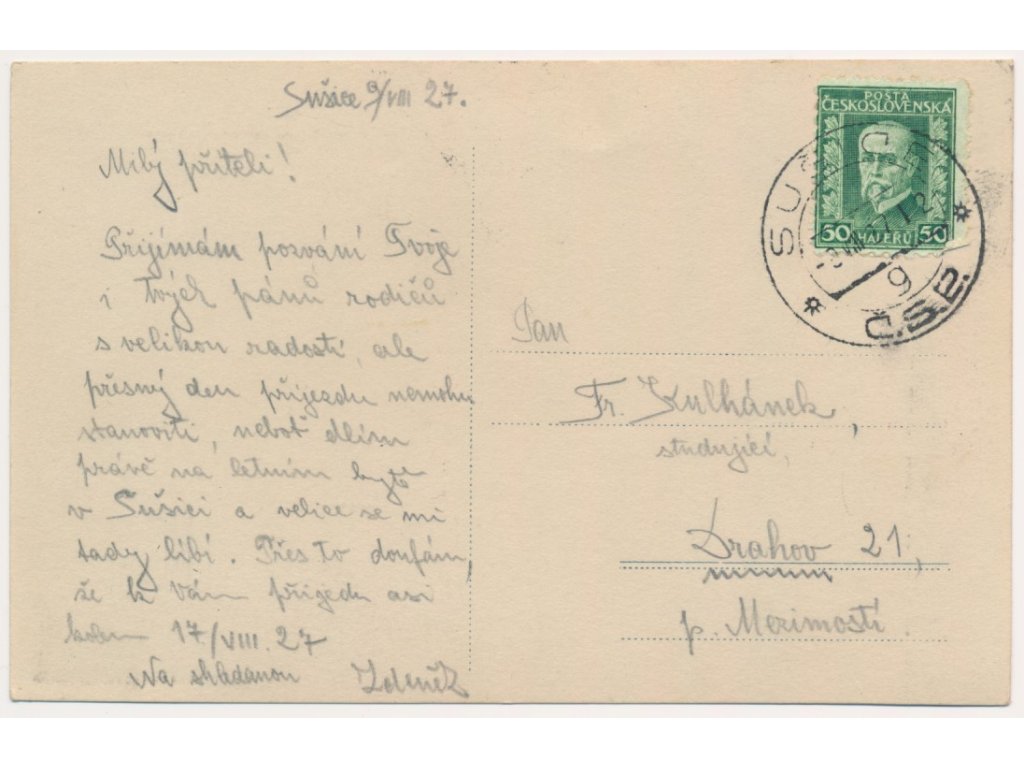 Sušice 9/VIII 27.
Milý příteli!
Přijímám pozvání Tvoje
i tvých pánů rodičů
s velikou radostí, ale
přesný den příjezdu nemohu
stanoviti, neboť dlím
právě na letním bytě
v Sušici a velice se mi
tady líbí. Přes to doufám
že k Vám přijedu asi
kolem 17/VIII. 27
Na shledanou Zdeněk
POŠTA
ČESKOSLOVENSKÁ
50 HALÉŘŮ 50
SUŠICE
9
Č.S.P.
Pan
Fr. Kulhánek,
studující,
Drahov 21,
p. Mezimostí.